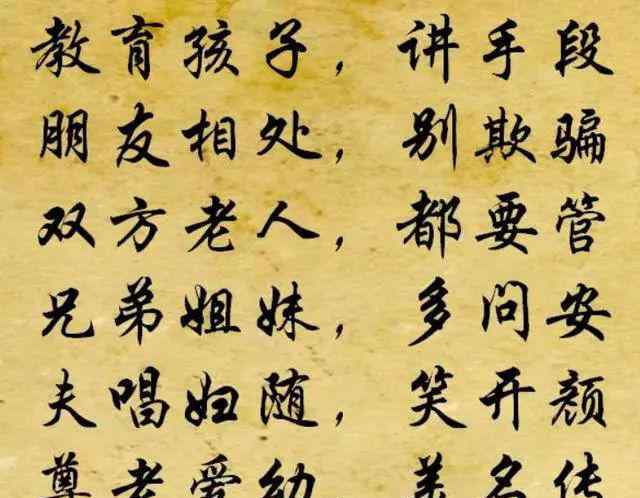 教育孩子，讲手段
朋友相处，别欺骗
双方老人，都要管
兄弟姐妹，多问安
夫唱妇随，笑开颜
尊老爱幼 美名传